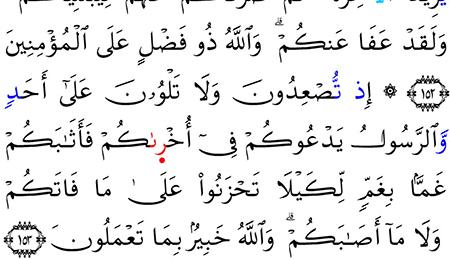 وَلَقَدْ عَفَا عَنكُمْ ۗ وَٱللَّهُ ذُو فَضْلٍ عَلَى ٱلْمُؤْمِنِينَ
﴿١٥٢﴾ ۞ إِذ تُّصْعِدُونَ وَلَا تَلْوُۥنَ عَلَىٰٓ أَحَدٍ
وَّٱلرَّسُولُ يَدْعُوكُمْ فِىٓ أُخْرٜىٰكُمْ فَأَثَٰبَكُمْ
غَمًّۢا بِغَمٍّ لِّكَيْلَا تَحْزَنُوا۟ عَلَىٰ مَا فَاتَكُمْ
وَلَا مَآ أَصَٰبَكُمْ ۗ وَٱللَّهُ خَبِيرٌۢ بِمَا تَعْمَلُونَ ﴿١٥٣﴾